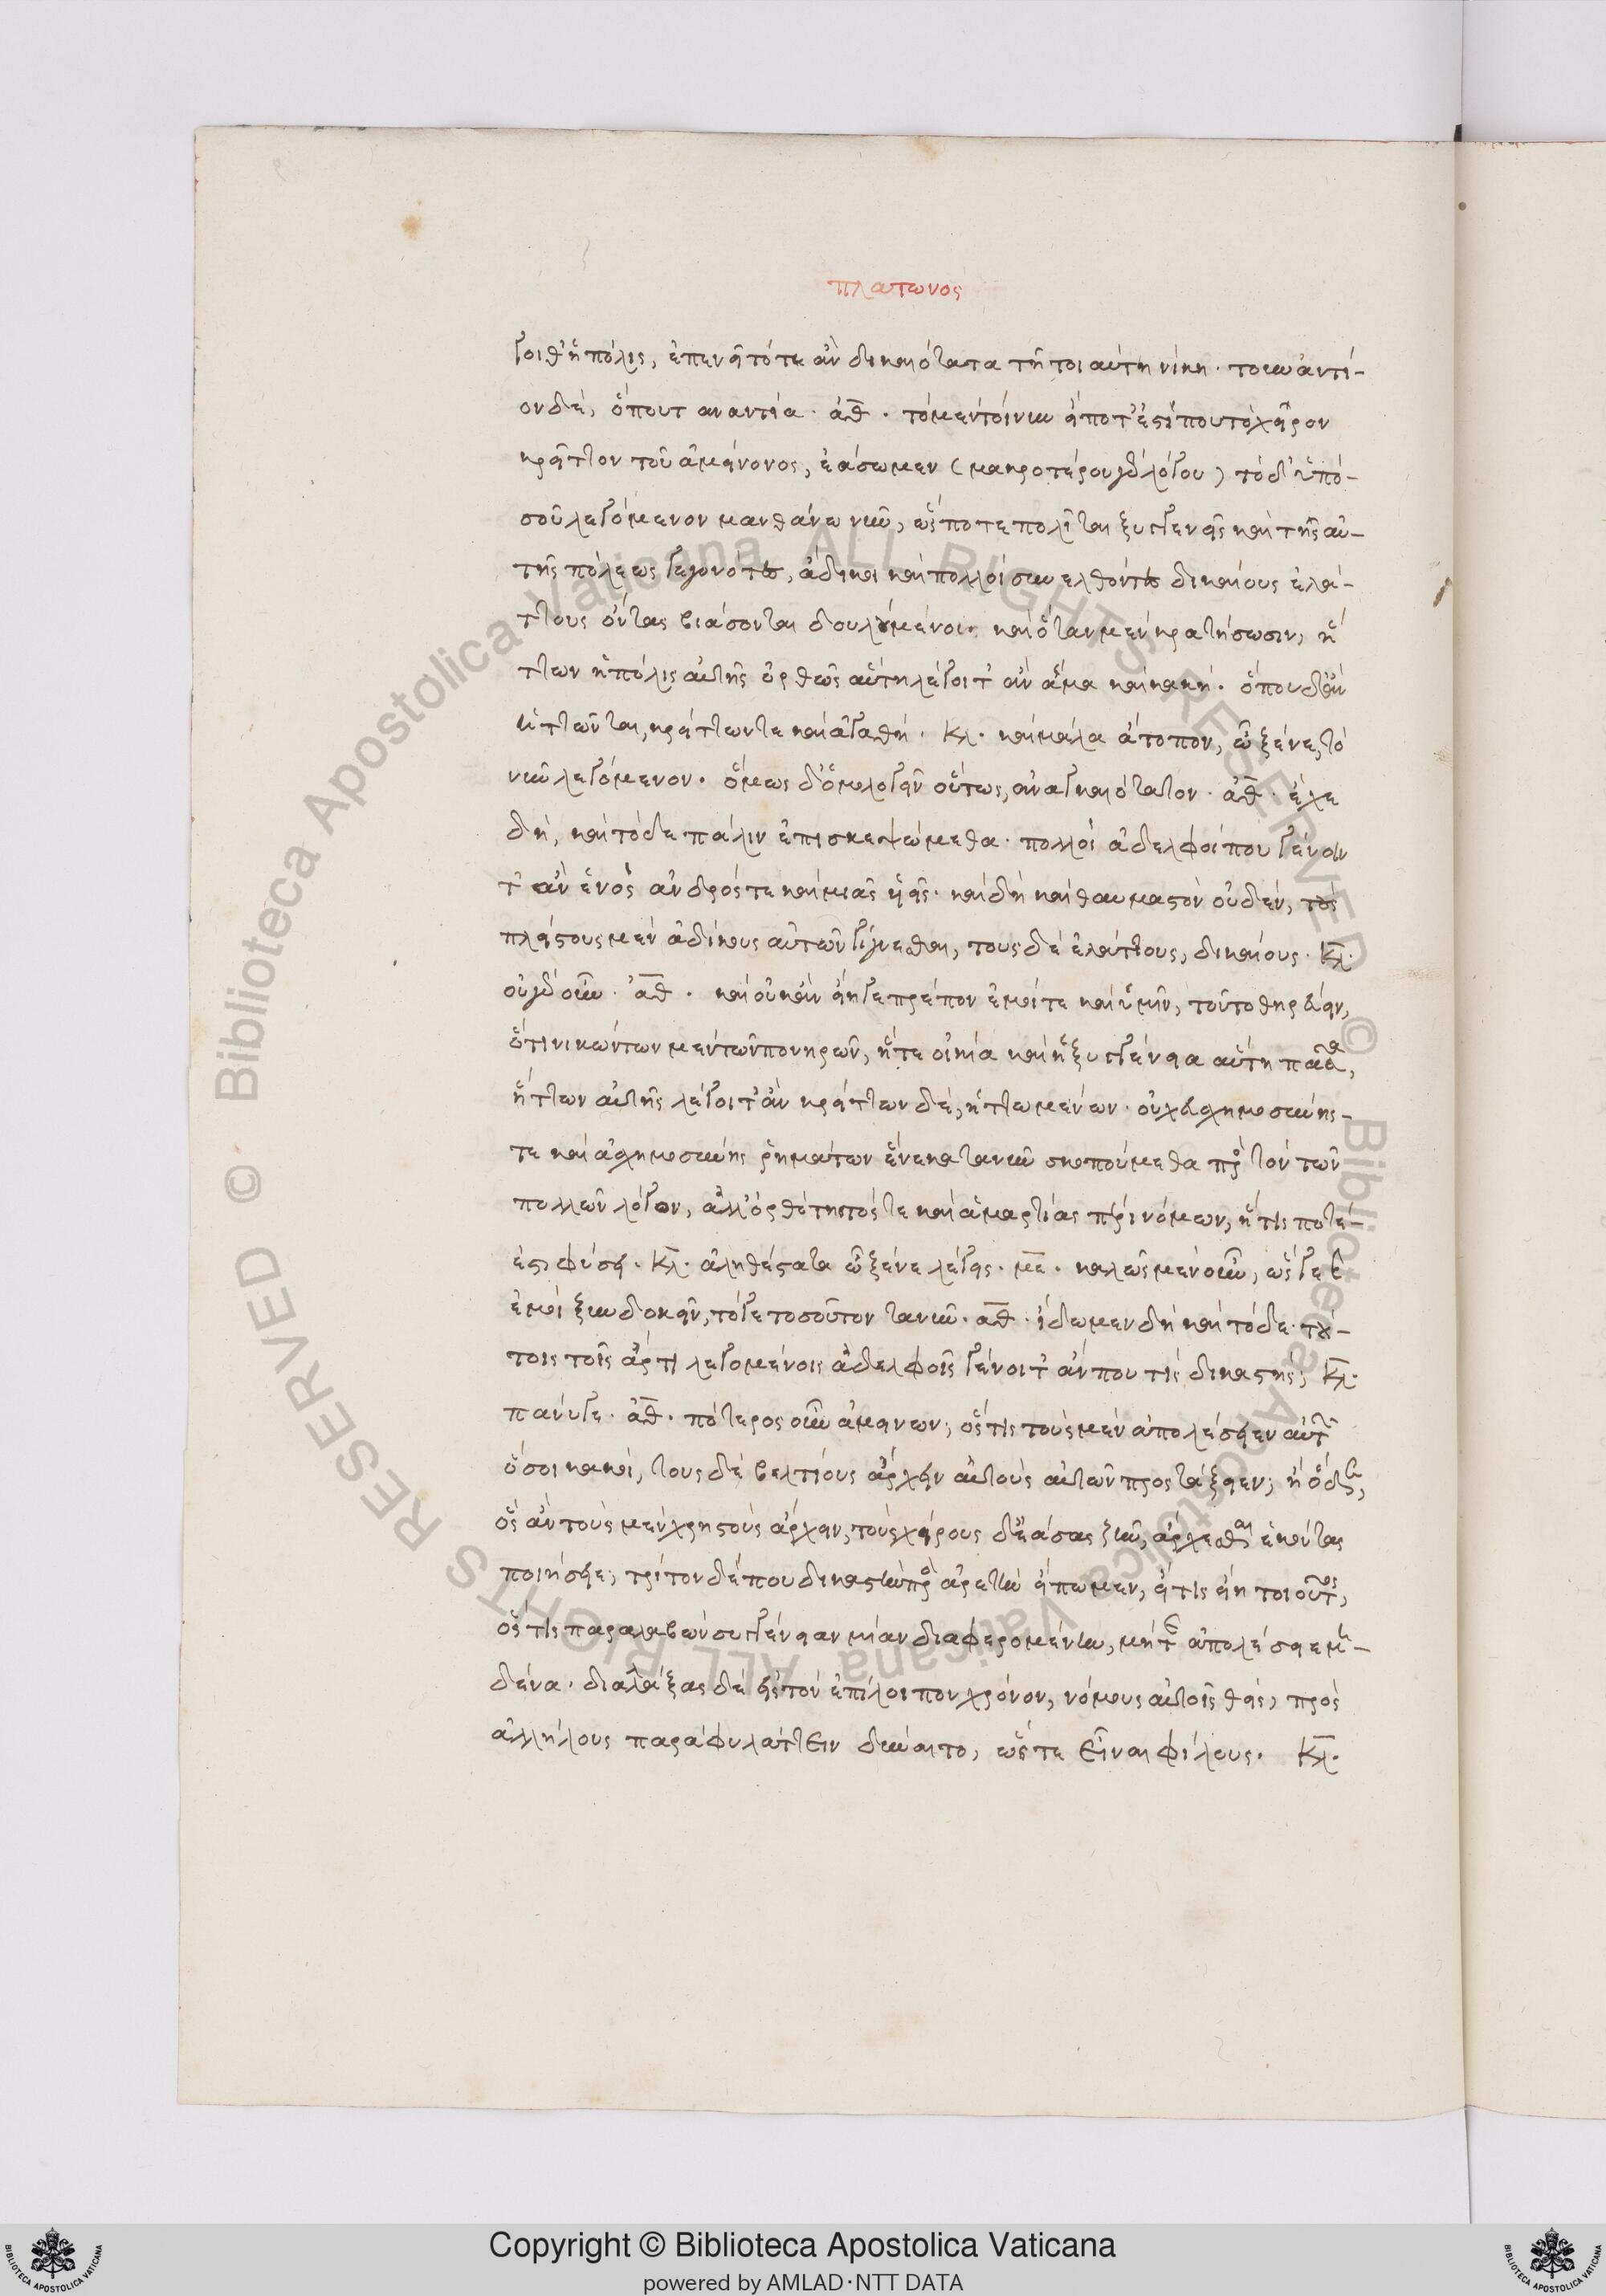 πλατωνος
γοιθ' ἡ πόλις, ἐπαινεῖτό τε ἂν δικαιότατα τῇ τοιαύτῃ νίκῃ · τοὐναντί-
ον δέ, ὅπου τἀναντία · ἀθ · τὸ μὲν τοίνυν εἴποτ' ἐστί που τὸ χεῖρον
κρεῖττον τοῦ ἀμείνονος, ἐάσωμεν (μακροτέρου γὰρ λόγου) τὸ δ' ὑπό-
σοῦ λεγόμενον μανθάνω νῦν, ὥς ποτε πολῖται ξυγγενεῖς καὶ τῆς αὐ-
τῆς πόλεως γεγονότες, ἄδικοι καὶ πολλοὶ συνελθόντες δικαίους ἐλά-
ττους ὄντας βιάσονται δουλούμενοι · καὶ ὅταν μὲν κρατήσωσιν, ἥ
ττων ἡ πόλις αὐτῆς ὀρθῶς αὕτη λέγοιτ' ἂν ἅμα καὶ κακή · ὅπου δ' ἂν
ἡττῶνται, κρείττων τε καὶ ἀγαθή · Κλ · καὶ μάλα ἄτοπον, ὦ ξένε, τὸ
νῦν λεγόμενον · ὅμως δ' ὁμολογεῖν οὕτως, ἀναγκαιότατον · ἀθ · ἔχε
δή, καὶ τόδε πάλιν ἐπισκεψώμεθα · πολλοὶ ἀδελφοί που γένοιν
τ' ἂν ἑνὸς ἀνδρός τε καὶ μιᾶς υἱεῖς · καὶ δὴ καὶ θαυμαστὸν οὐδέν, τοὺς
πλείστους μὲν ἀδίκους αὐτῶν γίγνεσθαι, τους δὲ ἐλάττους, δικαίους · Κλ ·
οὐ γὰρ οὖν · ἀθ · καὶ οὐκ ἂν εἴη γε πρέπον ἐμοί τε καὶ ὑμῖν, τοῦτο θηρεύειν,
ὅτι νικώντων μὲν τῶν πονηρῶν, ἥ τε οἰκία καὶ ἡ ξυγγένεια αὕτη πᾶσα,
ἥττων αὐτῆς λέγοιτ' ἂν κρείττων δέ, ἡττωμένων · οὐ γὰρ εὐσχημοσύνης-
τε καὶ ἀσχημοσύνης ῥημάτων ἕνεκα τανῦν σκοπούμεθα πρὸς τὸν τῶν
πολλῶν λόγον, ἀλλ' ὀρθότητός τε καὶ ἁμαρτίας πέρι νόμων, ἥτις ποτέ-
ἐστι φύσει · Κλ · ἀληθέστατα ὦ ξένε λέγεις · με · καλῶς μὲν οὖν, ὥς γε
ἐμοὶ ξυνδοκεῖν, τό γε τοσοῦτον τανῦν · ἀθ · ἴδωμεν δὴ καὶ τόδε · τού-
τοις τοῖς ἄρτι λεγομένοις ἀδελφοῖς γένοιτ' ἄν που τὶς δικαστής; Κλ ·
πάνυ γε · ἀθ · πότερος οὖν ἀμείνων; ὅστις τοὺς μὲν ἀπολέσειεν αὐτῶν
ὅσοι κακοί, τους δὲ βελτίους ἄρχειν αὐτοὺς αὑτῶν προστάξειεν; ἢ ὅδε,
ὃς ἂν τοὺς μὲν χρηστοὺς ἄρχειν, τοὺς χείρους δ' ἐάσας ζῆν, ἄρχεσθαι ἑκόντας
ποιήσειε; τρίτον δέ που δικαστὴν πρὸς ἀρετὴν εἴπωμεν, εἴ τις εἴη τοιοῦτος,
ὅστις παραλαβὼν συγγένειαν μίαν διαφερομένην, μήτε ἀπολέσειε μη-
δένα · διαλλάξας δὲ εἰς τὸν ἐπίλοιπον χρόνον, νόμους αὐτοῖς θείς, πρὸς
ἀλλήλους παραφυλάττειν δύναιτο, ὥστε εἶναι φίλους · Κλ ·
Copyright © Biblioteca Apostolica Vaticana
powered by AMLAD·NTT DATA